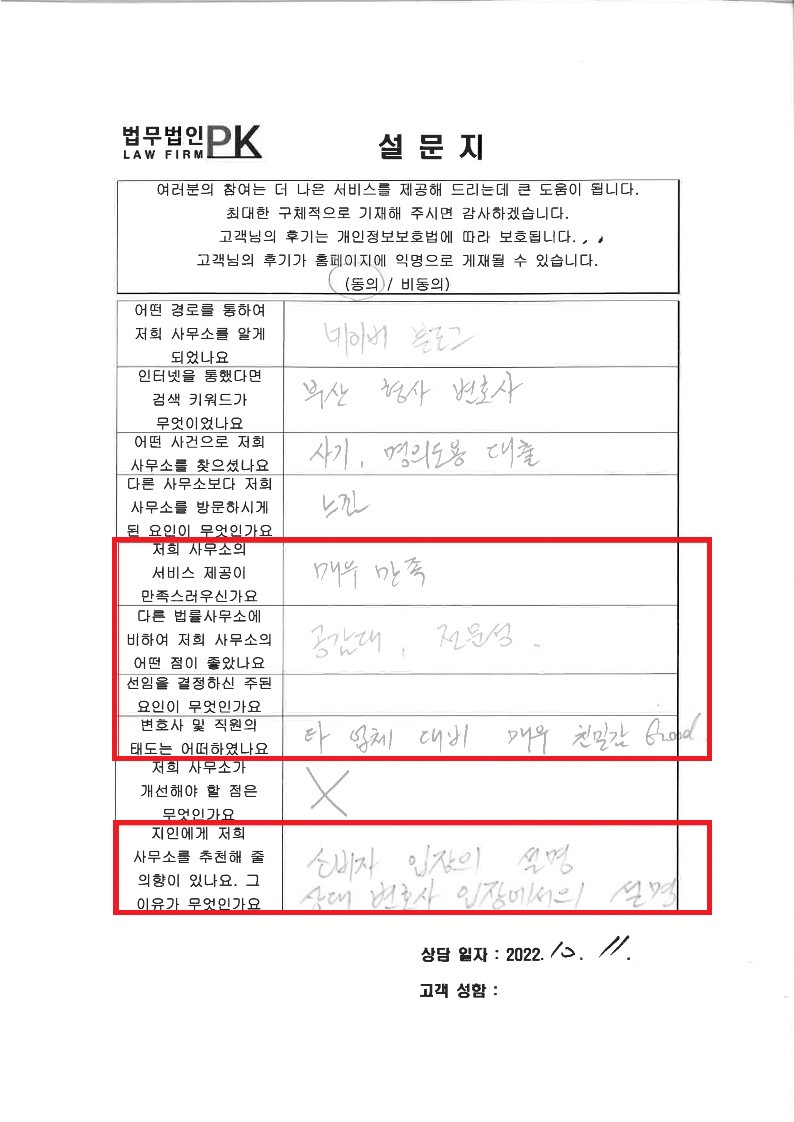 법무법인 PK
LAW FIRM
설 문 지
여러분의 참여는 더 나은 서비스를 제공해 드리는데 큰 도움이 됩니다.
최대한 구체적으로 기재해 주시면 감사하겠습니다.
고객님의 후기는 개인정보보호법에 따라 보호됩니다.
고객님의 후기가 홈페이지에 익명으로 게재될 수 있습니다.
(동의 / 비동의)
어떤 경로를 통하여
저희 사무소를 알게
되었나요
네이버 블로그
인터넷을 통했다면
검색 키워드가
무엇이었나요
부산 형사 변호사
어떤 사건으로 저희
사무소를 찾으셨나요
사기, 명의도용 대출
다른 사무소보다 저희
사무소를 방문하시게
된 요인이 무엇인가요
느낌
저희 사무소의
서비스 제공이
만족스러우신가요
매우 만족
다른 법률사무소에
비하여 저희 사무소의
어떤 점이 좋았나요
공감대, 전문성.
선임을 결정하신 주된
요인이 무엇인가요
변호사 및 직원의
태도는 어떠하였나요
타 업체 대비 매우 친밀감 Good.
저희 사무소가
개선해야 할 점은
무엇인가요
X
지인에게 저희
사무소를 추천해 줄
의향이 있나요. 그
이유가 무엇인가요
소비자 입장의 설명
상대 변호사 입장에서의 설명
상담 일자 : 2022. 10. 11.
고객 성함 :